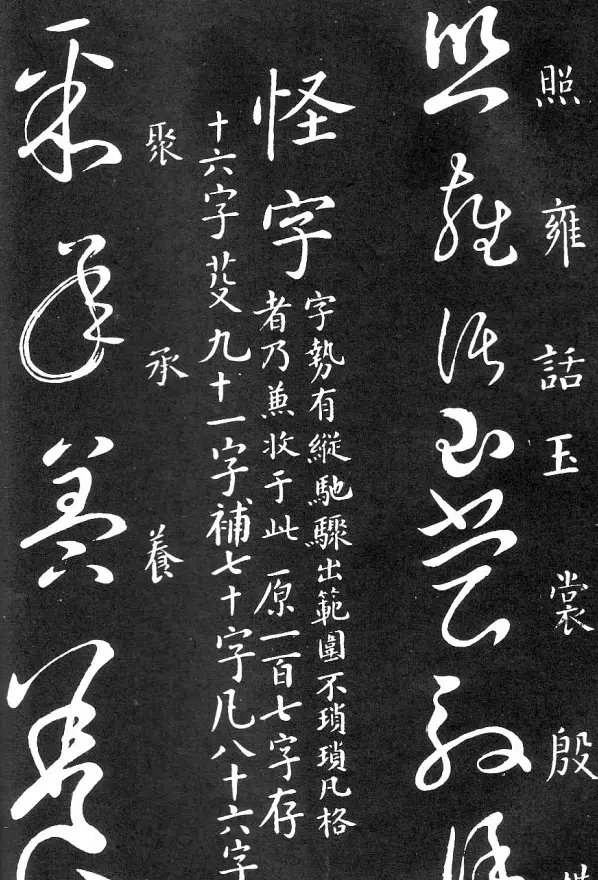 照雍話玉裳殷
照雍話玉裳殷
怪字
字勢有縱馳驟出範圍不瑣瑣凡格
者乃兼收于此原一百七字存
十六字芟九十一字補七十字凡八十六字
聚承養
聚承養養